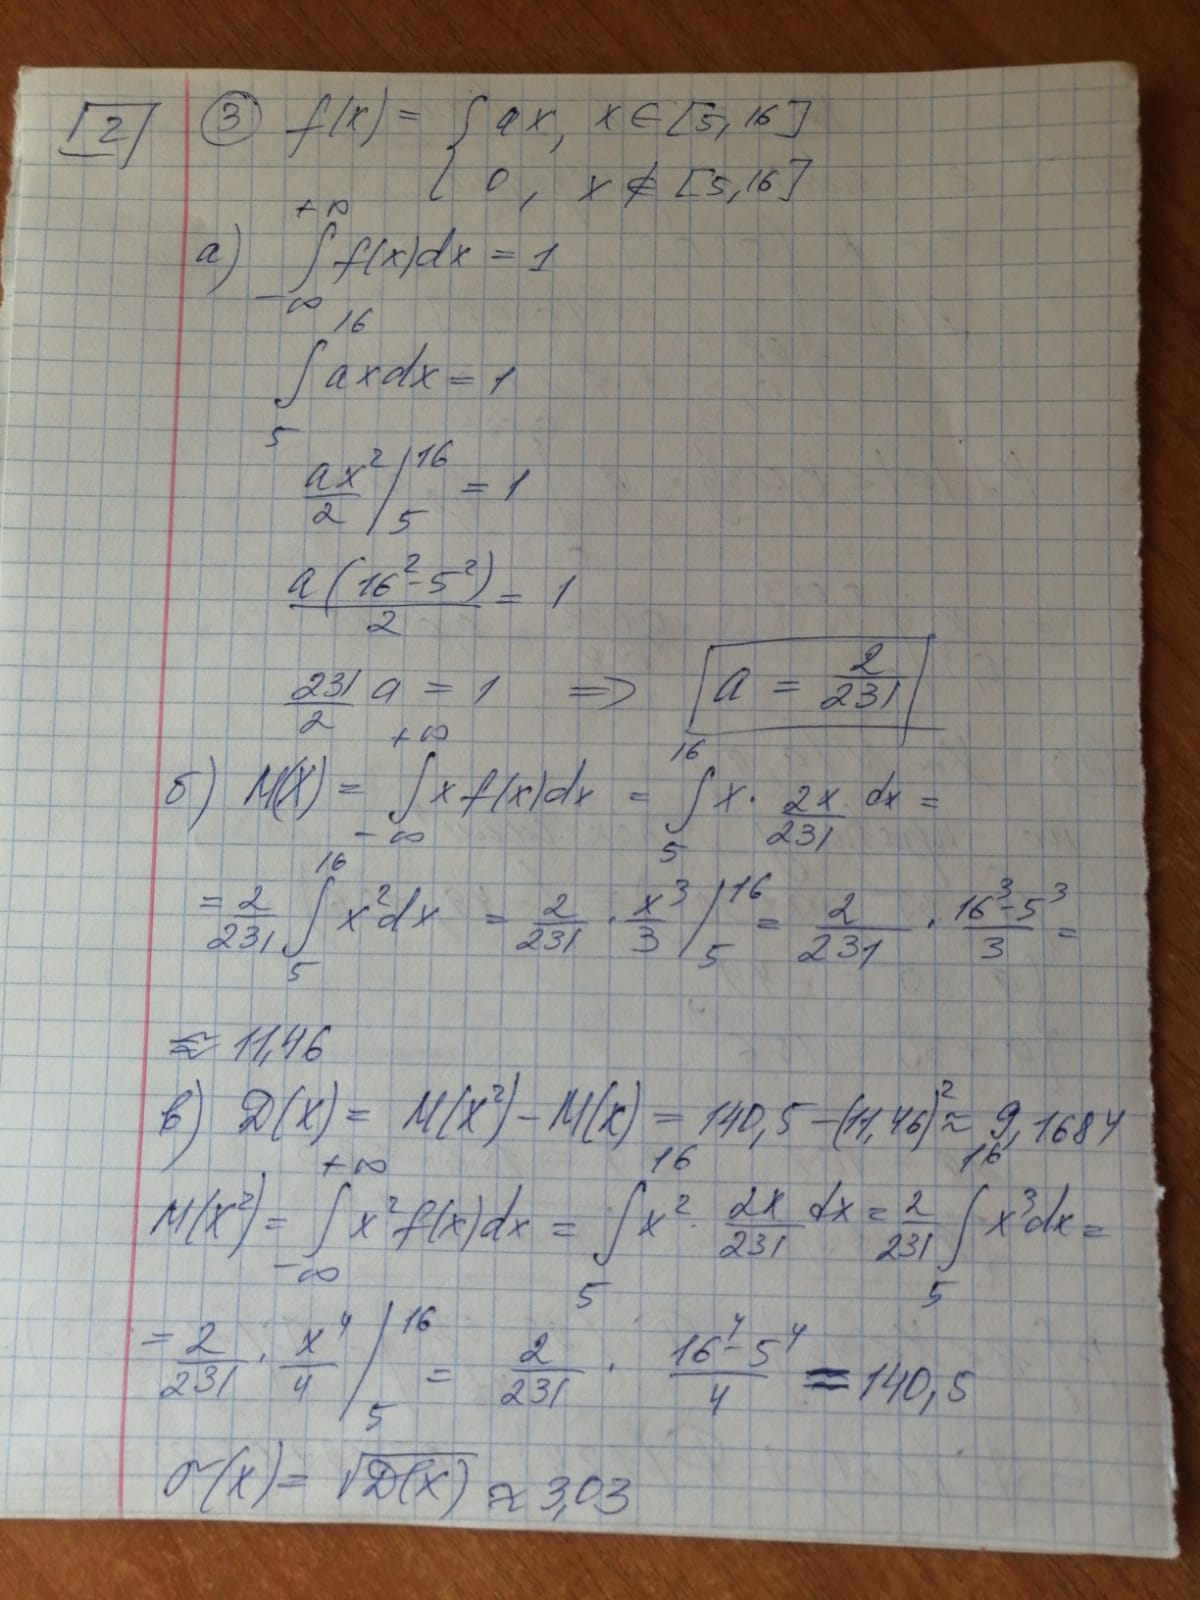 [2] ③ f(x) = { ax, x ∈ [5, 16]
0, x ∉ [5, 16]
а) ∫_{-∞}^{+∞} f(x)dx = 1
∫_{5}^{16} axdx = 1
ax²/2 |_{5}^{16} = 1
a(16²-5²)/2 = 1
231/2 a = 1 => a = 2/231
б) M(X) = ∫_{-∞}^{+∞} x f(x)dx = ∫_{5}^{16} x · 2x/231 dx =
= 2/231 ∫_{5}^{16} x²dx = 2/231 · x³/3 |_{5}^{16} = 2/231 · (16³-5³)/3 =
≈ 11,46
в) D(X) = M(X²) - M(X) = 140,5 - (11,46)² ≈ 9,1684
M(X²) = ∫_{-∞}^{+∞} x² f(x)dx = ∫_{5}^{16} x² · 2x/231 dx = 2/231 ∫_{5}^{16} x³dx =
= 2/231 · x⁴/4 |_{5}^{16} = 2/231 · (16⁴-5⁴)/4 = 140,5
σ(x) = √D(X) ≈ 3,03